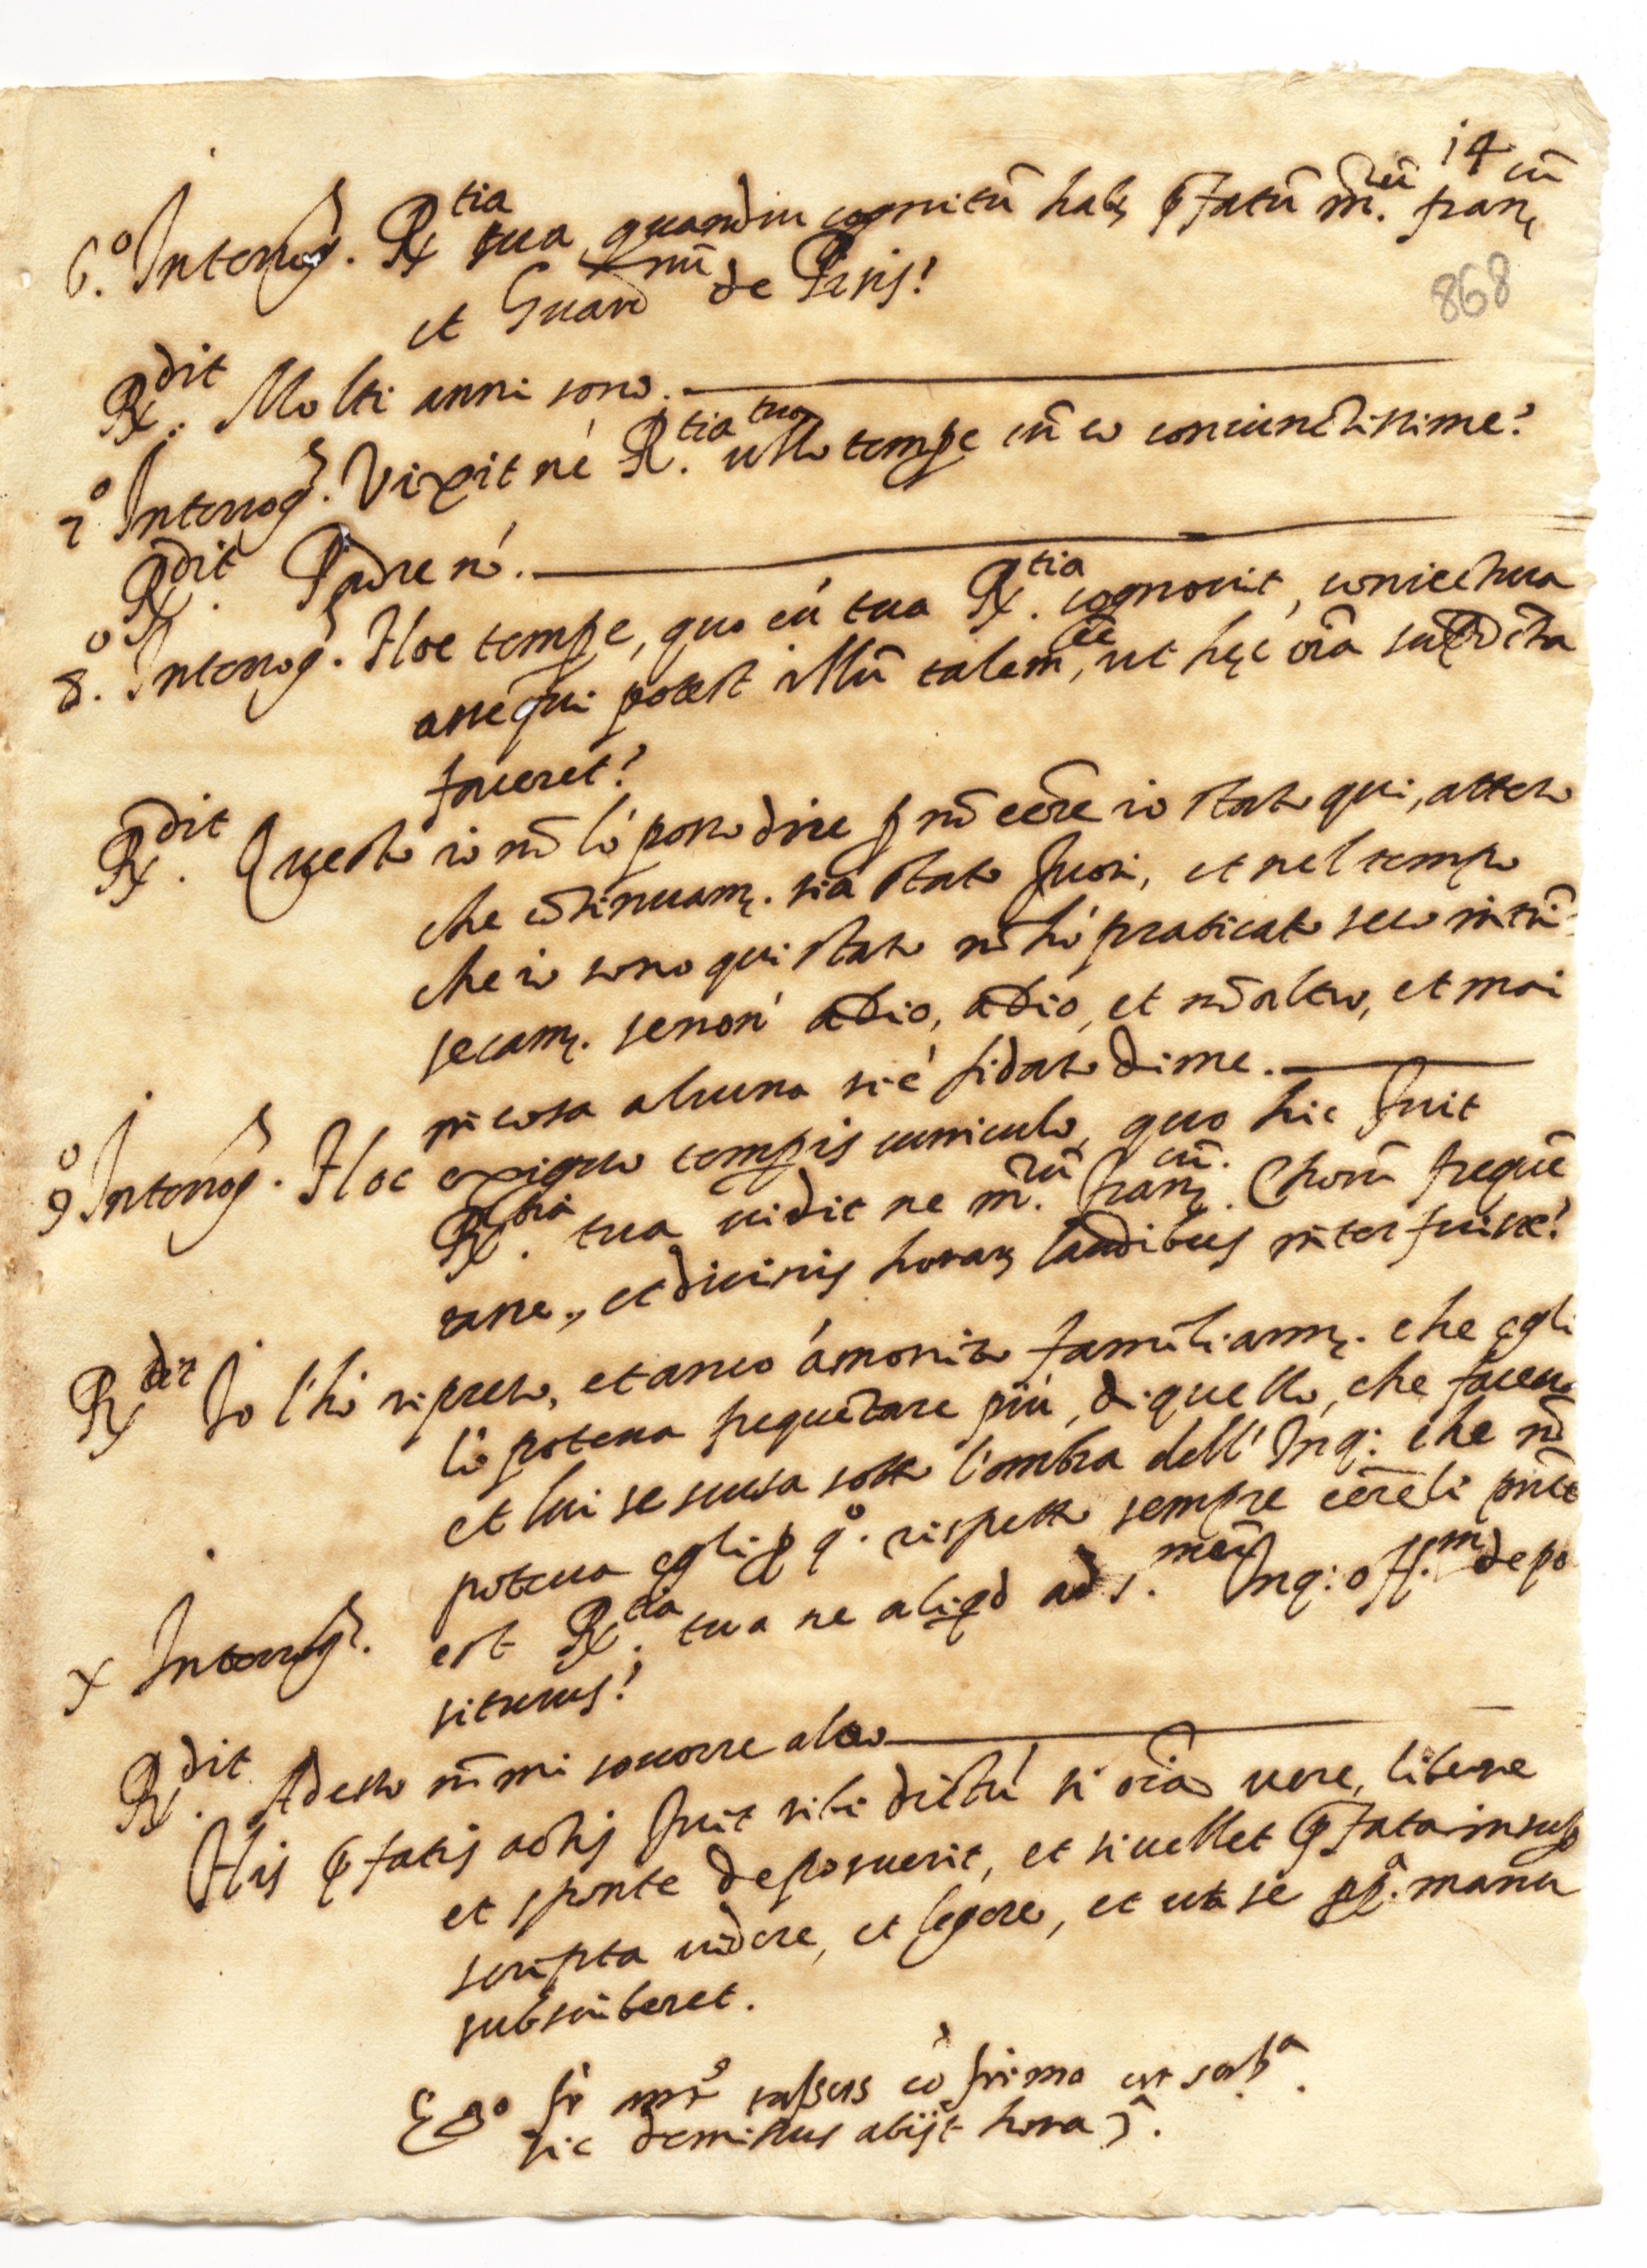 14
6.º Interrog. R.tia tua quandiu cognitū habet p̄fatū m̄.rū franc.cū
868
et Guard.nū de Paris?
R.dit Molti anni sono.
7º Interrog. Vixit né R.tia tua ullo tempe cū eo coniunctissime?
R.dit Padre nó.
8.º Interrog. Hoc tempe, quo eū tua R.tia cognovit, coniectura
assequi potest illū talem ēē, ut hęc oīa sup.dicta
faceret?
R.dit Questo io nō ló posso dire p nō eēre io stato qui, atteso
che cōtinuam. sia stato fuori, et nel tempo
che io sono qui stato nō hó praticato seco intrī
secam. senon adio, adio, et nō altro, et mai
in cosa alcuna si é fidato di me.
9º Interrog. Hoc exiguo tempis curriculo, quo hic fuit
R.tia tua vidit ne m.rū franc.cū. Chorū frequē
tasse, et divinis horarū laudibus interfuisse?
R.dit Io l'hó ripreso, et anco ámonito familiarm. che egli
ló poteva frequētare piú, di quello, che faceva
et lui se scusa sotto l'ombra dell'Inq: che nō
poteva egli p q.º rispetto sempre eēreli pn̄te
x Interrog. est R.tia tua ne aliqd ad s. Inq: off.m depo
siturus?
R.dit Adesso nō mi soccorre altro
His p̄fatis actis fuit sibi dictū si oīa vere, libere
et sponte deposuerit, et si vellet p̄fata insup
scripta videre, et legere, et ut se pp.ª manu
subscriberet.
Ego fr m.r cōfirmo ut sop.ª
sic demissus abijt hora